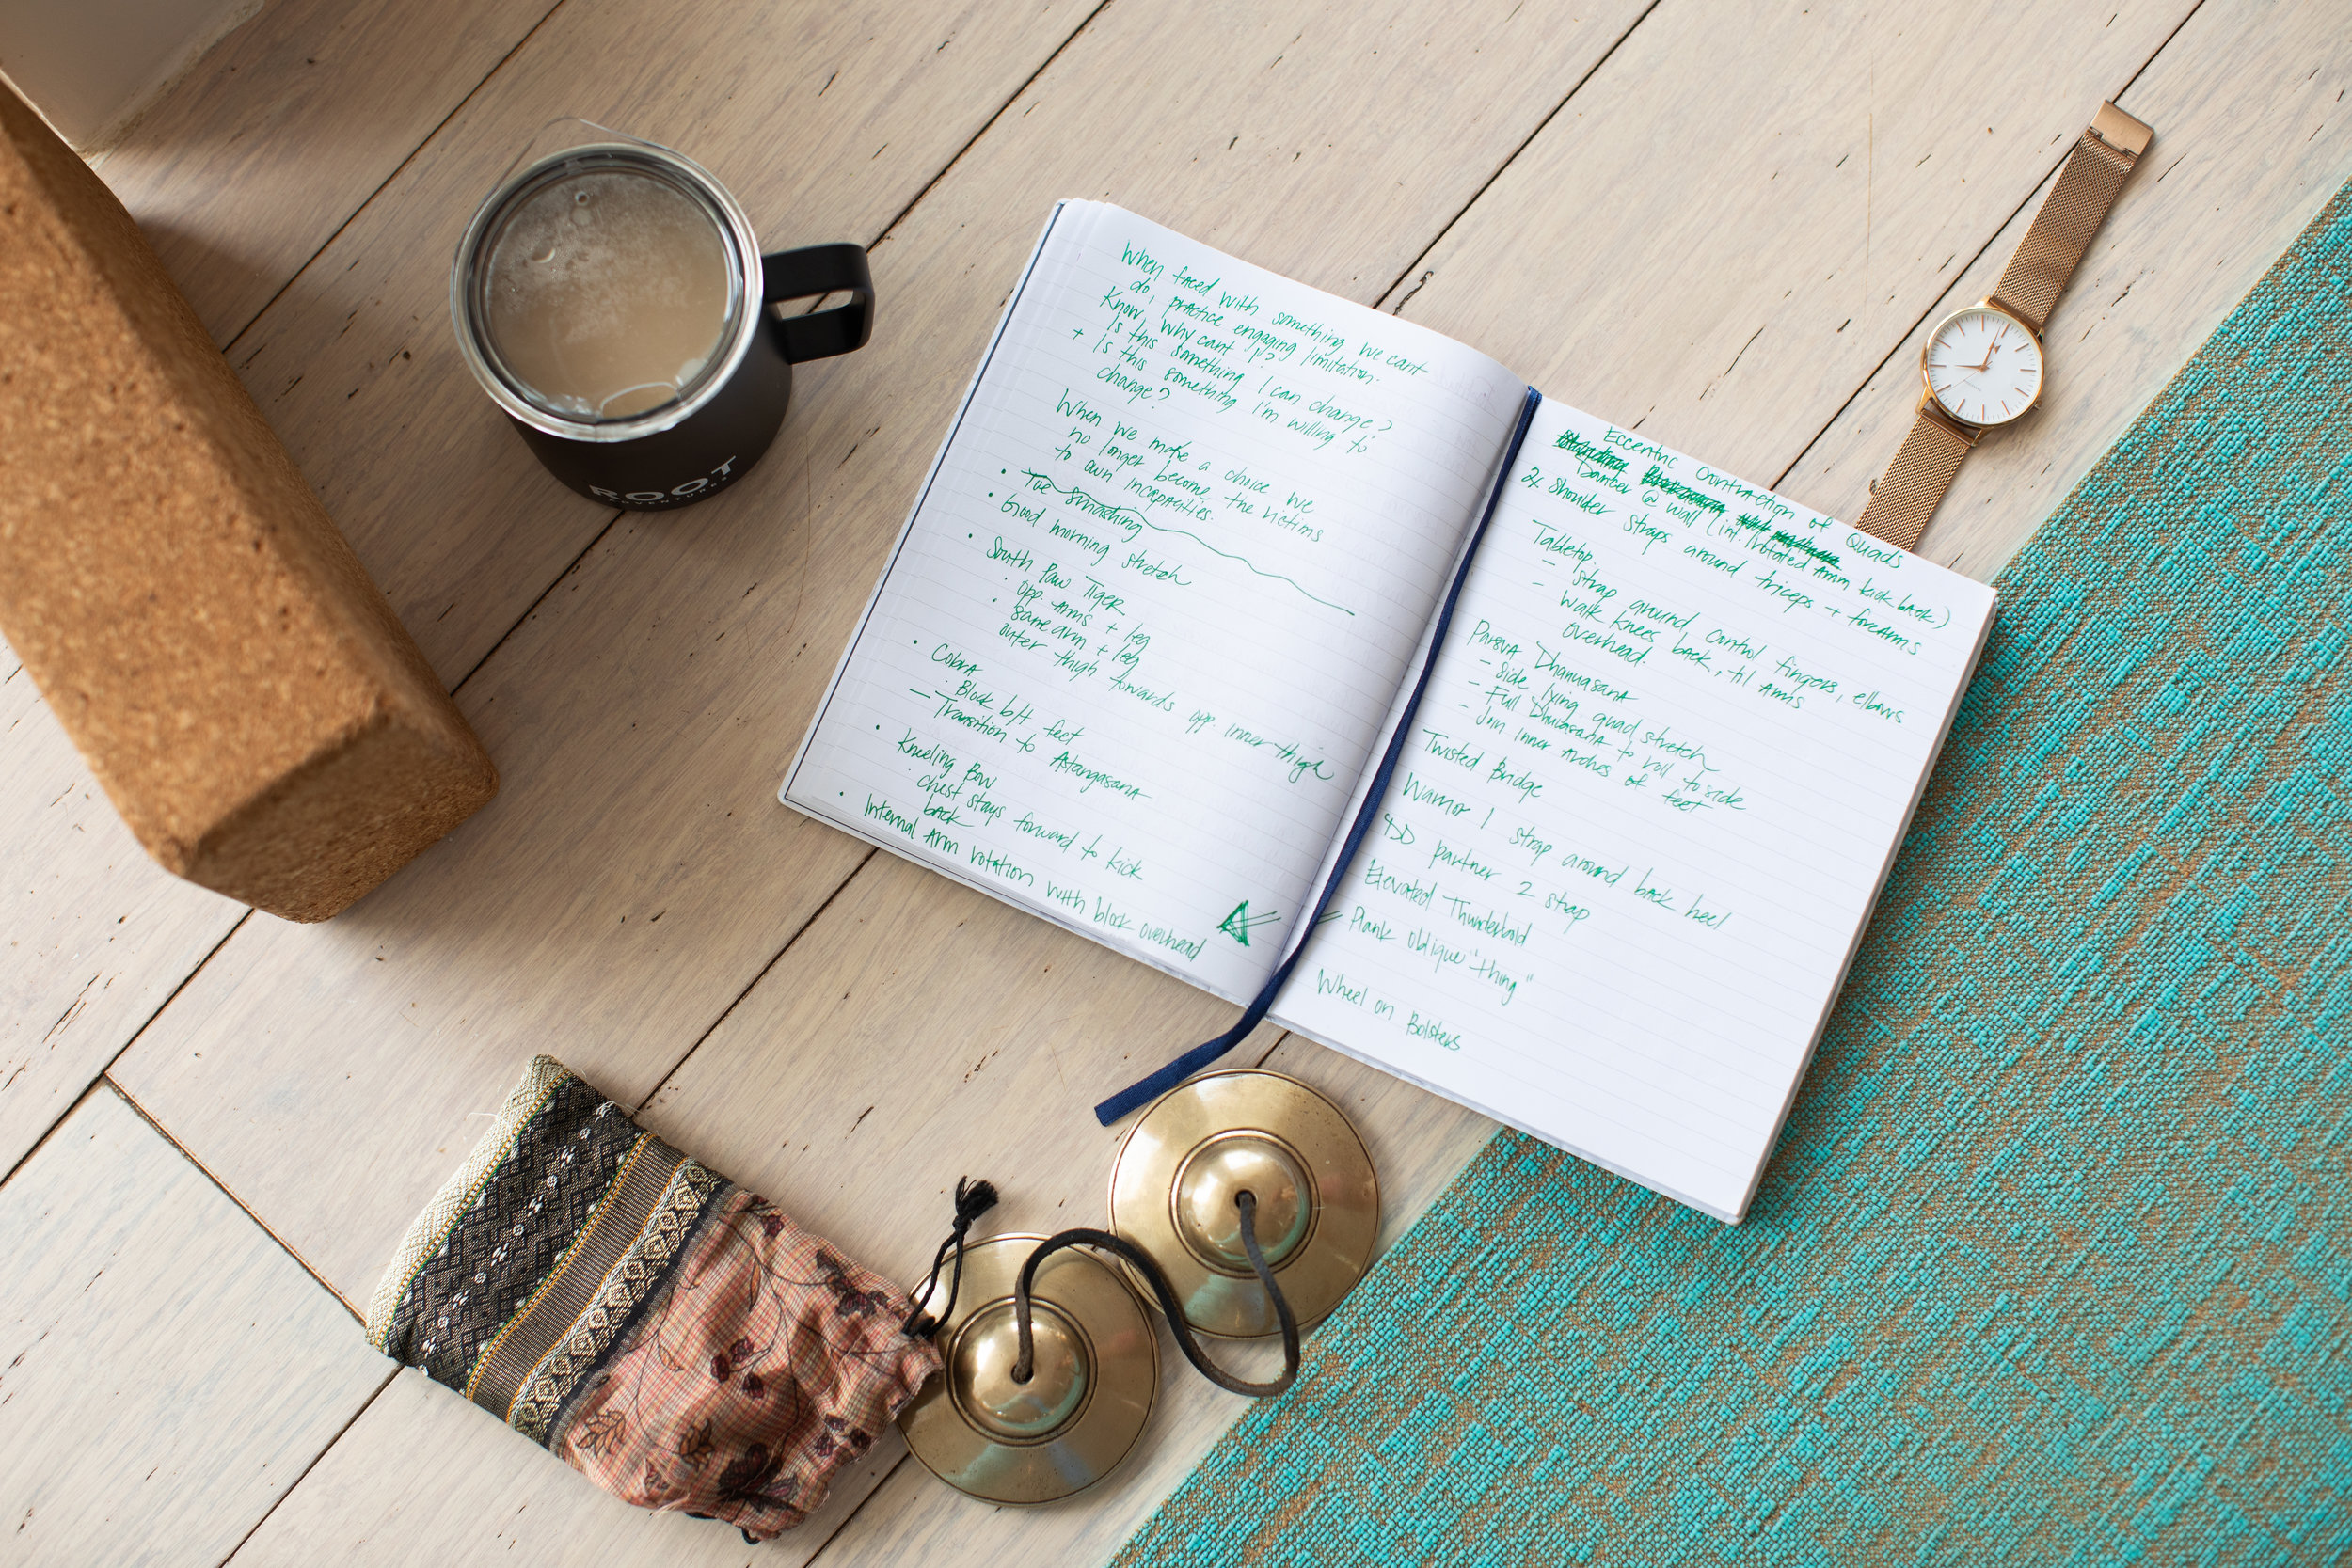 ROOT
ADVENTURES
When faced with something we cant
do, practice engaging limitation.
Know, why cant I?
Is this something I can change?
+ Is this something I'm willing to
change?
When we make a choice we
no longer become the victims
to own incapacities.
• Toe smashing
• Good morning stretch
• South Paw Tiger
• opp. Arms + leg
• same arm + leg
outer thigh towards opp inner thigh
• Cobra
• Block b/t feet
— Transition to Astangasana
• Kneeling Bow
• chest stays forward to kick
back
• Internal Arm rotation with block overhead
Eccentric Contraction of Quads
Dancer @ wall (int. rotated Arm kick back)
2x shoulder straps around triceps + forearms
Tabletop
- strap around control fingers, elbows
- walk knees back, til Arms
overhead.
Parsva Dhanuasana
- Side lying quad stretch
- Full Dhurasana to roll to side
- Join inner Arches of feet
Twisted Bridge
Warrior 1 strap around back heel
DD partner 2 strap
Elevated Thunderbold
Plank oblique "thing"
Wheel on Bolsters